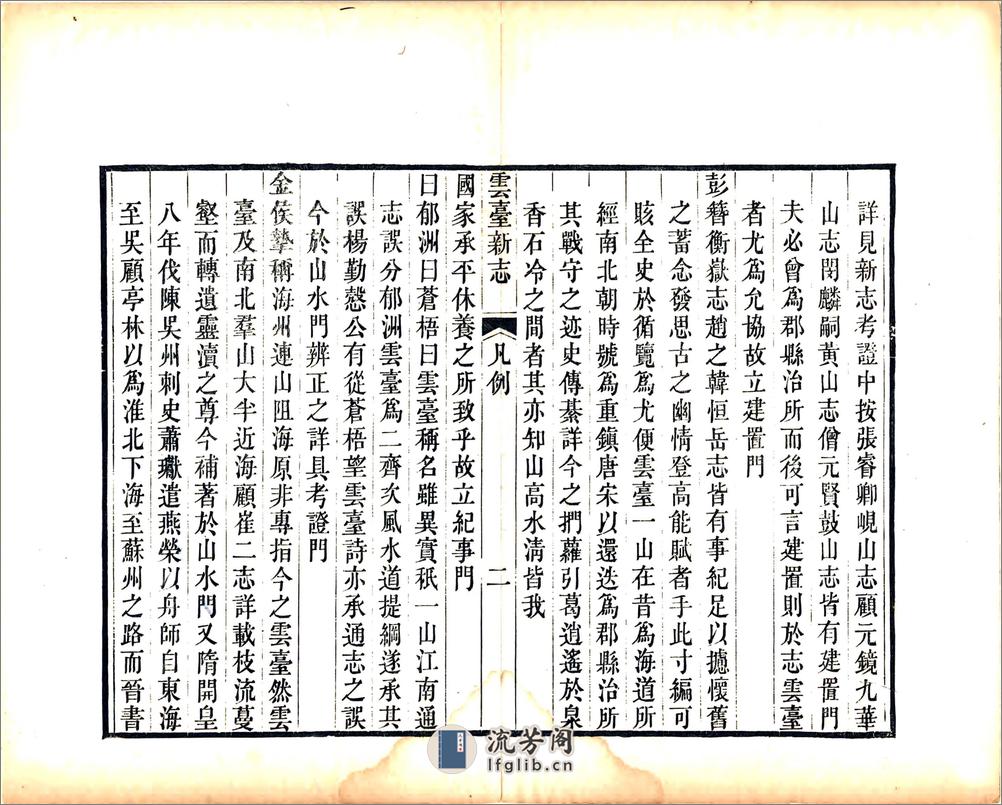 詳見新志考證中按張睿卿峴山志顧元鏡九華
山志閔麟嗣黃山志僧元賢鼓山志皆有建置門
夫必曾爲郡縣治所而後可言建置則於志雲臺
者尤爲允協故立建置門
彭簪衡嶽志趙之韓恒岳志皆有事紀足以攄懷舊
之蓄念發思古之幽情登高能賦者手此寸編可
賅全史於循覽爲尤便雲臺一山在昔爲海道所
經南北朝時號爲重鎮唐宋以還迭爲郡縣治所
其戰守之迹史傳綦詳今之捫蘿引葛逍遙於泉
香石冷之間者其亦知山高水清皆我
國家承平休養之所致乎故立紀事門
雲臺新志
凡例
二
曰郁洲曰蒼梧曰雲臺稱名雖異實秖一山江南通
志誤分郁洲雲臺爲二齊次風水道提綱遂承其
誤楊勤慤公有從蒼梧望雲臺詩亦承通志之誤
今於山水門辨正之詳具考證門
金侯摯稱海州連山阻海原非專指今之雲臺然雲
臺及南北羣山大半近海顧崔二志詳載枝流蔓
壑而轉遺靈瀆之尊今補著於山水門又隋開皇
八年伐陳吳州刺史蕭瓛遣燕榮以舟師自東海
至吳顧亭林以爲淮北下海至蘇州之路而晉書
流芳阁
lfglib.cn